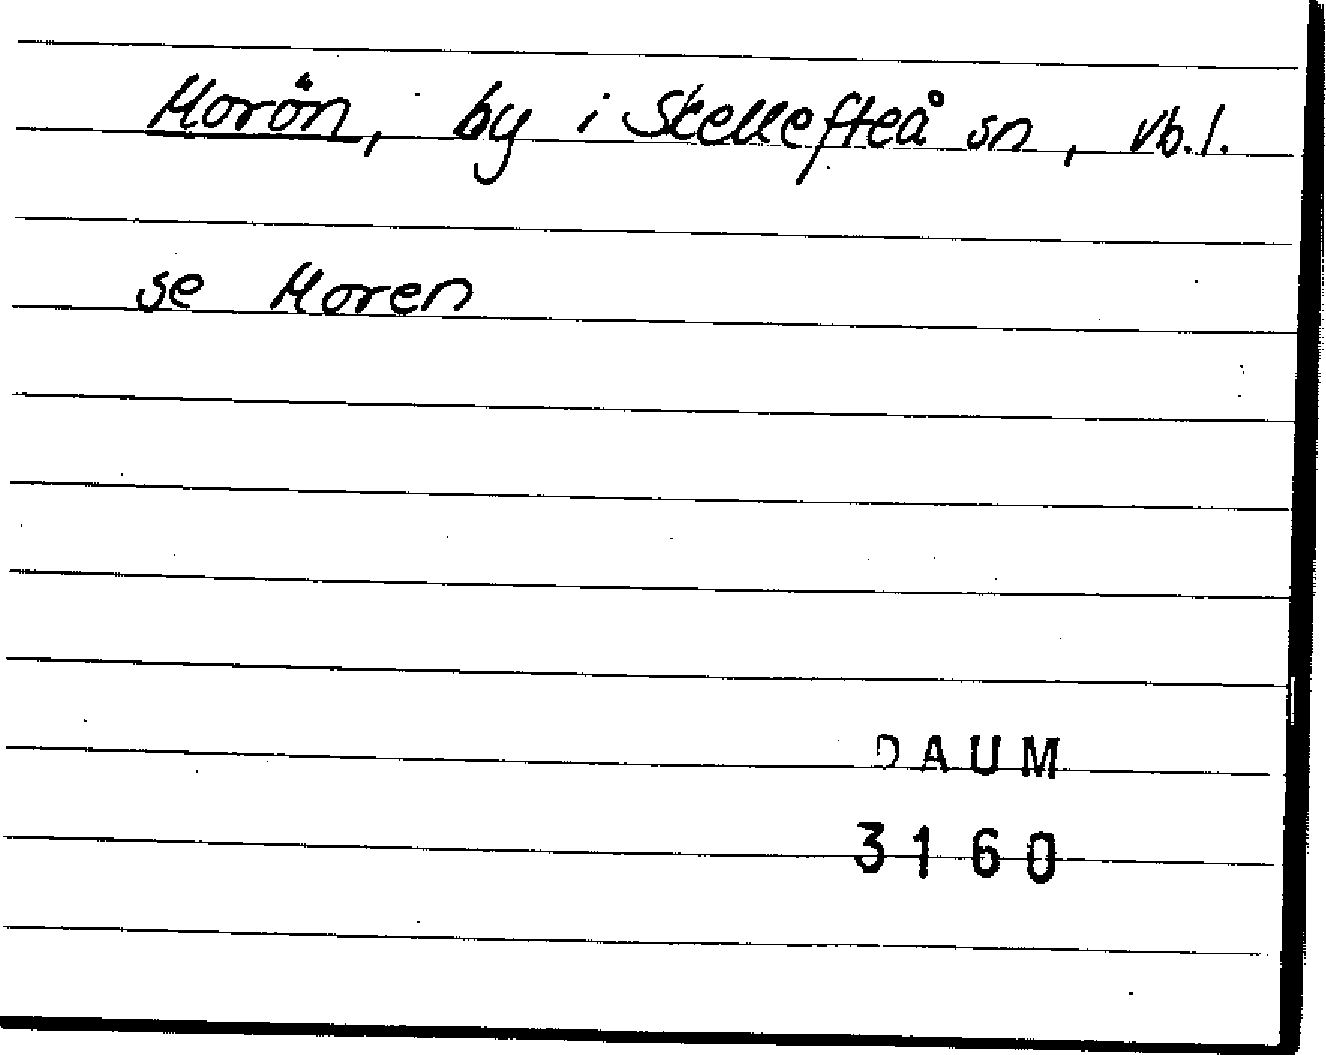 Morön, by i Skellefteå sn, Vb.l.
se Moren
DAUM
3160